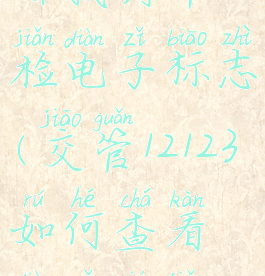 jiǎn diàn zǐ biāo zhì
检电子标志
jiāo guǎn
(交管12123
rú hé chá kàn
如何查看